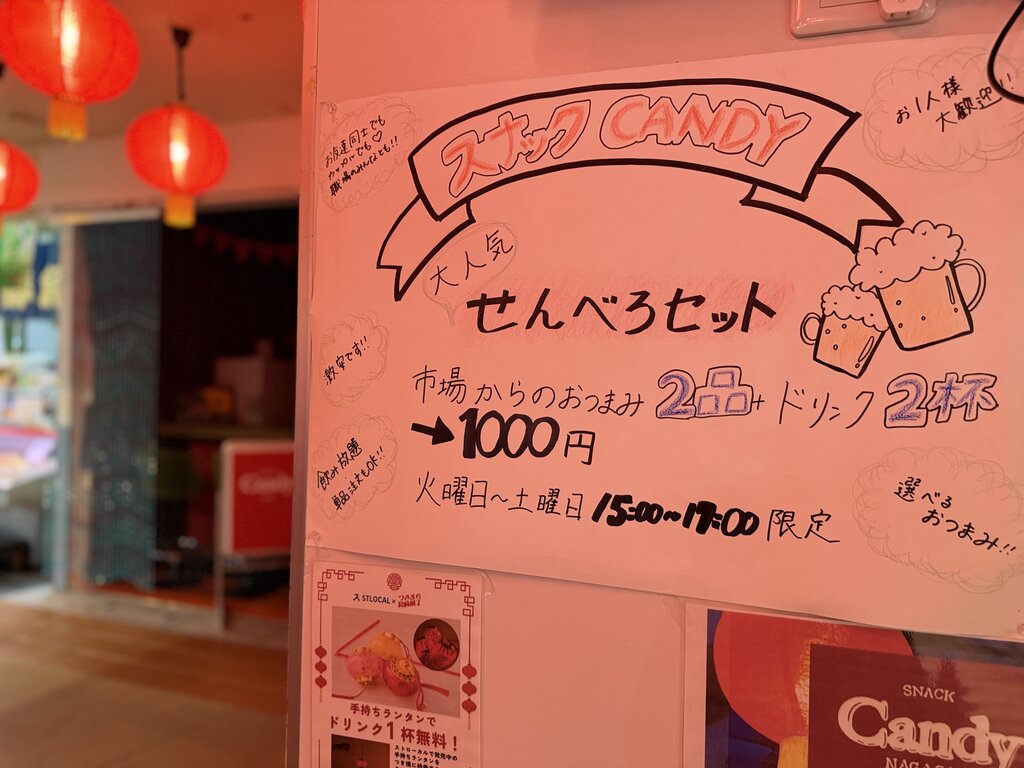 スナック CANDY
お友達同士でも
カップルでも♡
職場のみんなとも!!
お1人様
大歓迎!!
大人気
せんべろセット
激安です!!
市場からのおつまみ2品+ドリンク2杯
→1000円
飲み放題
単品注文もOK!!
火曜日~土曜日15:00~17:00限定
選べる
おつまみ!!
STLOCAL×
手持ちランタンで
ドリンク1杯無料!
ストローカルで発売中の
手持ちランタンを
SNACK
Candy
Candy